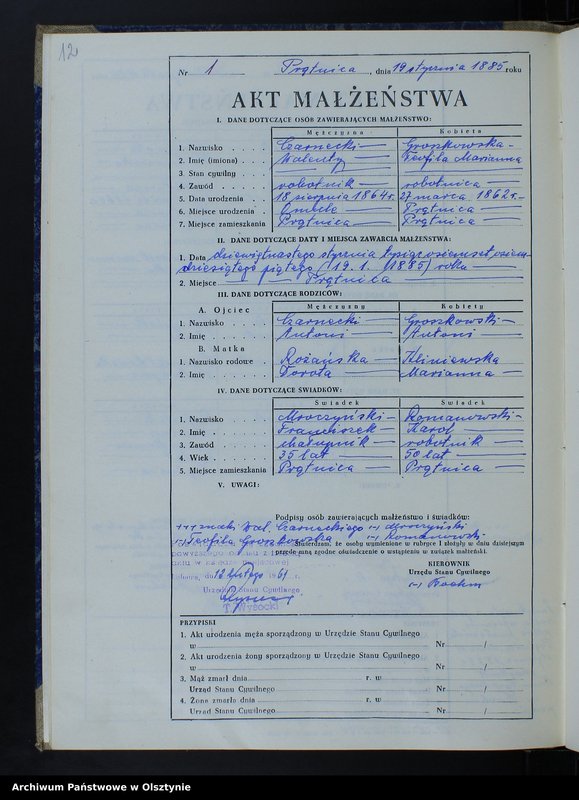 12
Nr 1 Prątnica, dnia 19 stycznia 1885 roku
AKT MAŁŻEŃSTWA
I. DANE DOTYCZĄCE OSÓB ZAWIERAJĄCYCH MAŁŻEŃSTWO:
Mężczyzna Kobieta
1. Nazwisko Czarnecki Groszkowska
2. Imię (imiona) Walenty Teofila Marianna
3. Stan cywilny
4. Zawód robotnik robotnica
5. Data urodzenia 18 sierpnia 1864 r. 27 marca 1862 r.
6. Miejsce urodzenia Omule Prątnica
7. Miejsce zamieszkania Prątnica Prątnica
II. DANE DOTYCZĄCE DATY I MIEJSCA ZAWARCIA MAŁŻEŃSTWA:
1. Data dziewiętnastego stycznia tysiąc osiemset osiem-
dziesiątego piątego (19. 1. 1885) roku
2. Miejsce Prątnica
III. DANE DOTYCZĄCE RODZICÓW:
Mężczyzny Kobiety
A. Ojciec
1. Nazwisko Czarnecki Groszkowski
2. Imię Antoni Antoni
B. Matka
1. Nazwisko rodowe Rożańska Kliniewska
2. Imię Dorota Marianna
IV. DANE DOTYCZĄCE ŚWIADKÓW:
Świadek Świadek
1. Nazwisko Mroczyński Romanowski
2. Imię Franciszek Karol
3. Zawód chałupnik robotnik
4. Wiek 35 lat 50 lat
5. Miejsce zamieszkania Prątnica Prątnica
V. UWAGI:
Podpisy osób zawierających małżeństwo i świadków:
+++ znaki Wal. Czarneckiego (-) Mroczyński
(-) Teofila Groszkowska (-) Romanowski
Stwierdzam, że osoby wymienione w rubryce I złożyły w dniu dzisiejszym
przede mną zgodne oświadczenie o wstąpieniu w związek małżeński.
powyższego
dn. 16 lutego 1961 r.
KIEROWNIK
Urzędu Stanu Cywilnego
(-)
Urzędu Stanu Cywilnego
T. Wysocki
PRZYPISKI
1. Akt urodzenia męża sporządzony w Urzędzie Stanu Cywilnego
w Nr /
2. Akt urodzenia żony sporządzony w Urzędzie Stanu Cywilnego
w Nr /
3. Mąż zmarł dnia r. w
Urząd Stanu Cywilnego Nr /
4. Żona zmarła dnia r. w
Urząd Stanu Cywilnego Nr /
Archiwum Państwowe w Olsztynie